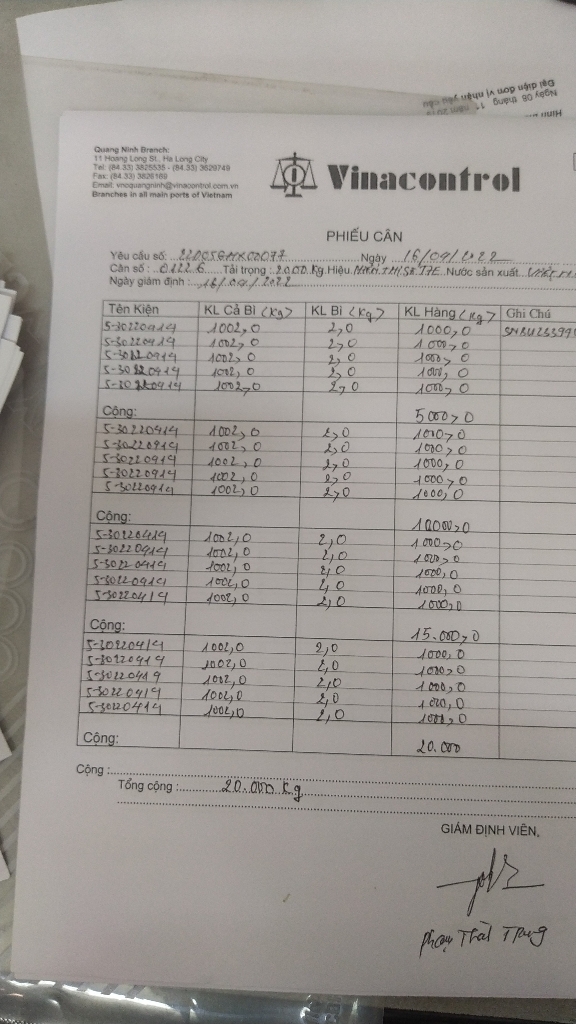 Ngày 06 tháng 11 năm
Đại diện đơn vị nhận yêu cầu
Quang Ninh Branch:
11 Hoang Long St., Ha Long City
Tel: (84.33) 3825538 - (84.33) 3829749
Fax: (84.33) 3826169
Email: vncquangninh@vinacontrol.com.vn
Branches in all main ports of Vietnam
Vinacontrol
PHIẾU CÂN
Yêu cầu số: Ngày 16/04/2022
Cân số : 01226 Tải trọng : 2000 Kg. Hiệu. Nước sản xuất
Ngày giám định : 16/04/2022
Tên Kiện KL Cả Bì <Kg> KL Bì <Kg> KL Hàng <Kg> Ghi Chú
5-30220414 1002,0 2,0 1000,0
5-30220414 1002,0 2,0 1000,0
5-30220414 1002,0 2,0 1000,0
5-30220414 1002,0 2,0 1000,0
5-30220414 1002,0 2,0 1000,0
Cộng: 5000,0
5-30220414 1002,0 2,0 1000,0
5-30220414 1002,0 2,0 1000,0
5-30220414 1002,0 2,0 1000,0
5-30220414 1002,0 2,0 1000,0
5-30220414 1002,0 2,0 1000,0
Cộng: 10000,0
5-30220414 1002,0 2,0 1000,0
5-30220414 1002,0 2,0 1000,0
5-30220414 1002,0 2,0 1000,0
5-30220414 1002,0 2,0 1000,0
5-30220414 1002,0 2,0 1000,0
Cộng: 15.000,0
5-30220414 1002,0 2,0 1000,0
5-30220414 1002,0 2,0 1000,0
5-30220414 1002,0 2,0 1000,0
5-30220414 1002,0 2,0 1000,0
5-30220414 1002,0 2,0 1000,0
Cộng: 20.000
Cộng :
Tổng cộng : 20.000 Kg
GIÁM ĐỊNH VIÊN,
Phạm Thái Trung